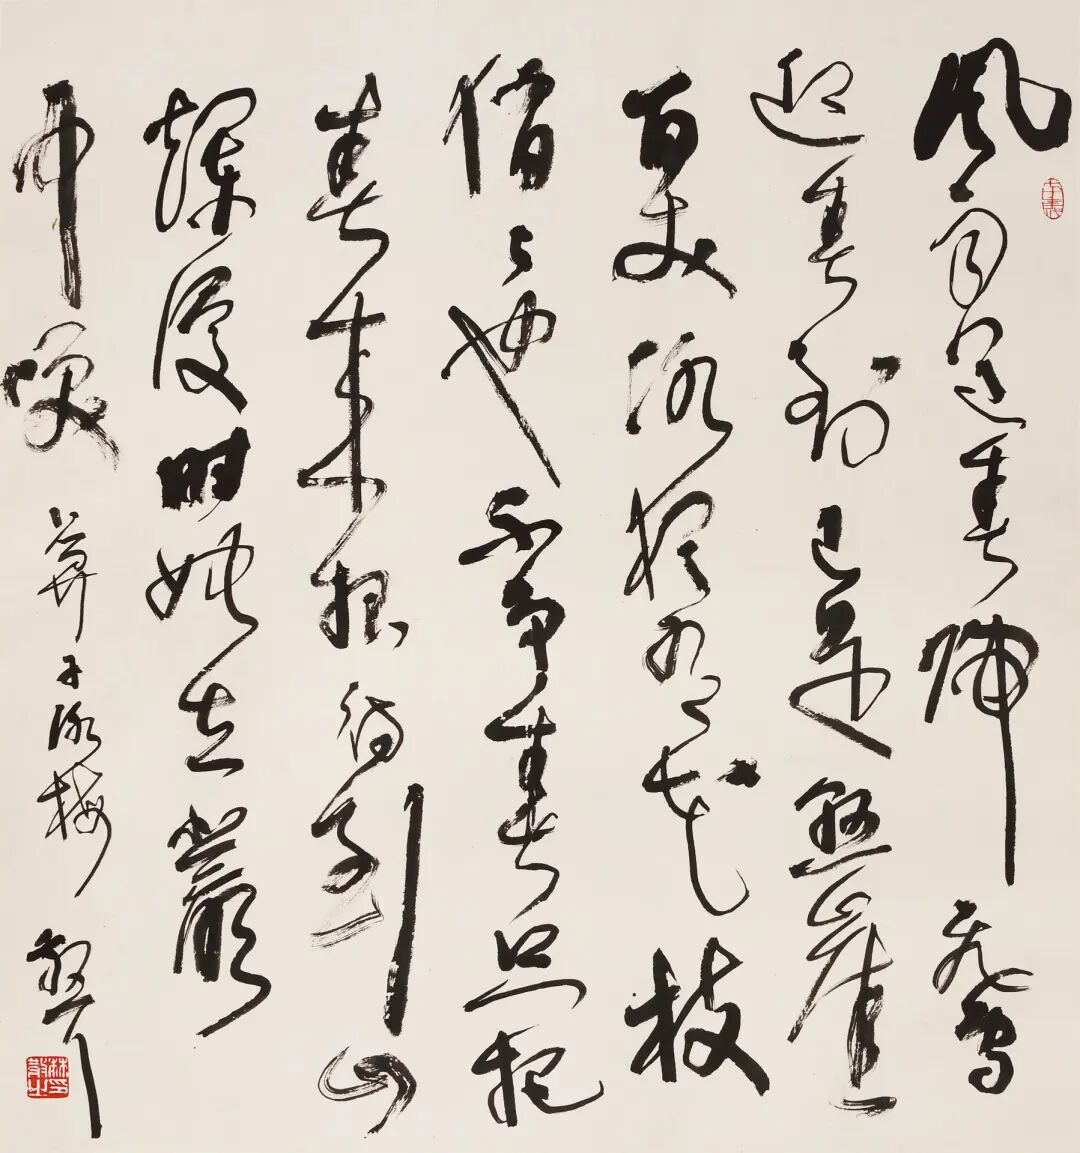 风雨送春归飞雪
迎春到已是悬崖
百丈冰犹有花枝
俏々也不争春只把
春来报待到山
爛漫时她在叢
中笑 卜算子咏梅